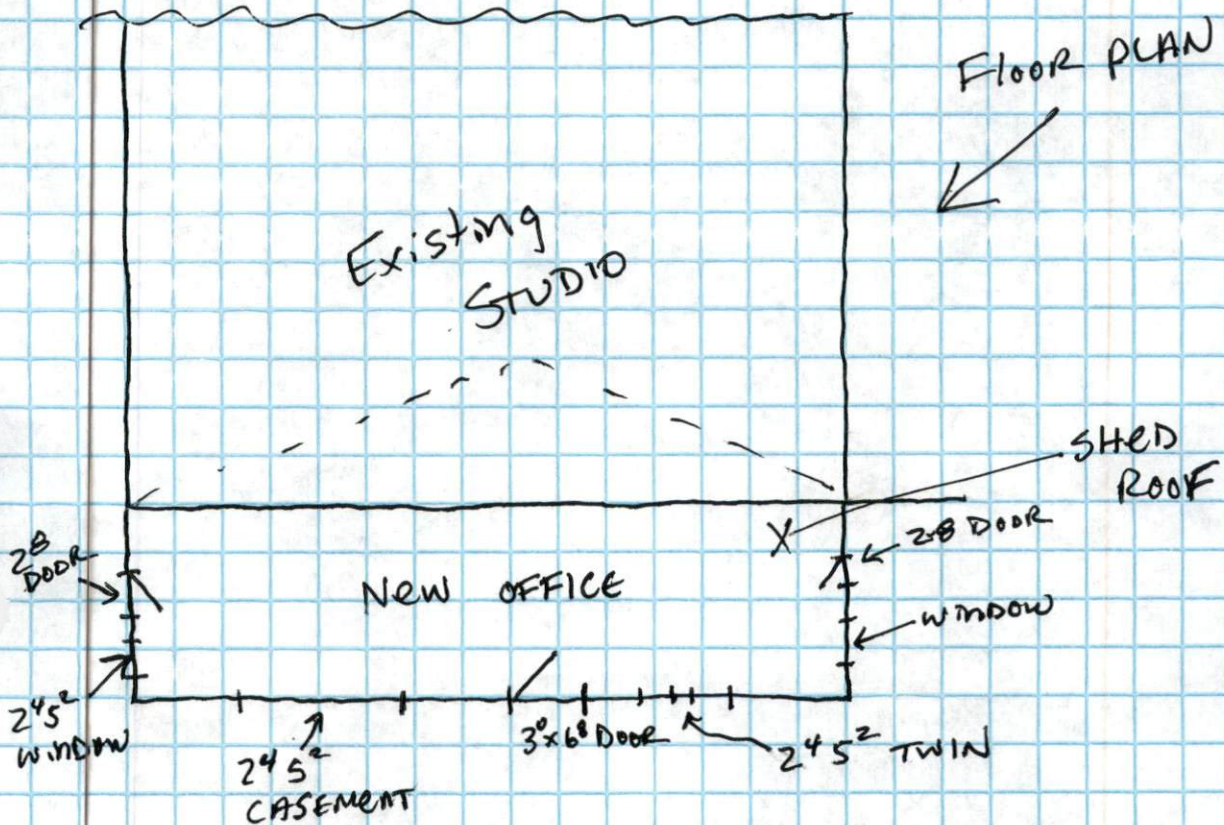 Floor PLAN
Existing
STUDIO
SHED
ROOF
X
2⁸
DOOR
2-8 DOOR
New OFFICE
WINDOW
2⁴5²
WINDOW
2⁴5²
CASEMENT
3⁰x6⁸ DOOR
2⁴5² TWIN